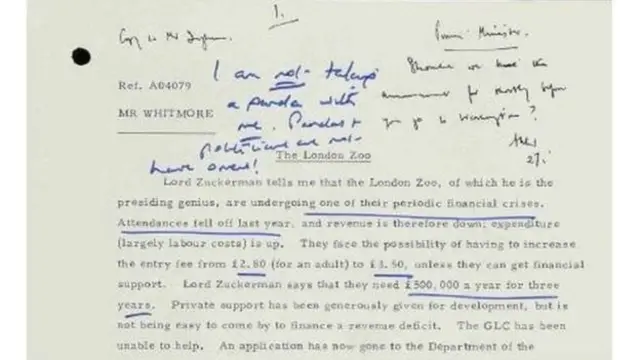 1.
Copy to Mr
Prime Minister.
I am not taking
a panda with
me. Pandas &
politicians are not
happy omens!
we
announcement for shortly before
you go to Washington?
27.
Ref. A04079
MR WHITMORE
The London Zoo
Lord Zuckerman tells me that the London Zoo, of which he is the
presiding genius, are undergoing one of their periodic financial crises.
Attendances fell off last year, and revenue is therefore down; expenditure
(largely labour costs) is up. They face the possibility of having to increase
the entry fee from £2.80 (for an adult) to £3.50, unless they can get financial
support. Lord Zuckerman says that they need £500,000 a year for three
years. Private support has been generously given for development, but is
not being easy to come by to finance a revenue deficit. The GLC has been
unable to help. An application has now gone to the Department of the